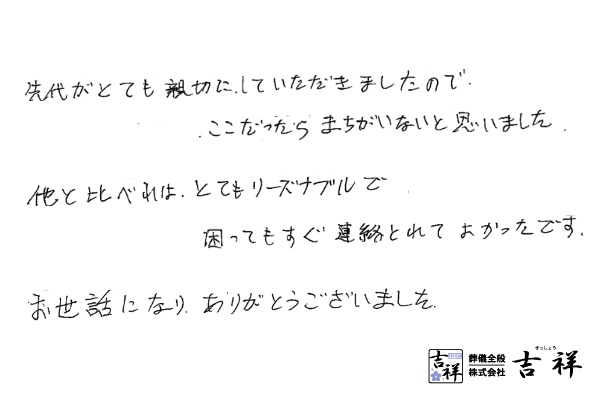 先代がとても親切にしていただきましたので、
ここだったらまちがいないと思いました。
他と比べれば、とてもリーズナブルで
困ってもすぐ連絡とれてよかったです。
お世話になり、ありがとうございました。
吉祥
葬儀全般
株式会社
きっしょう
吉祥